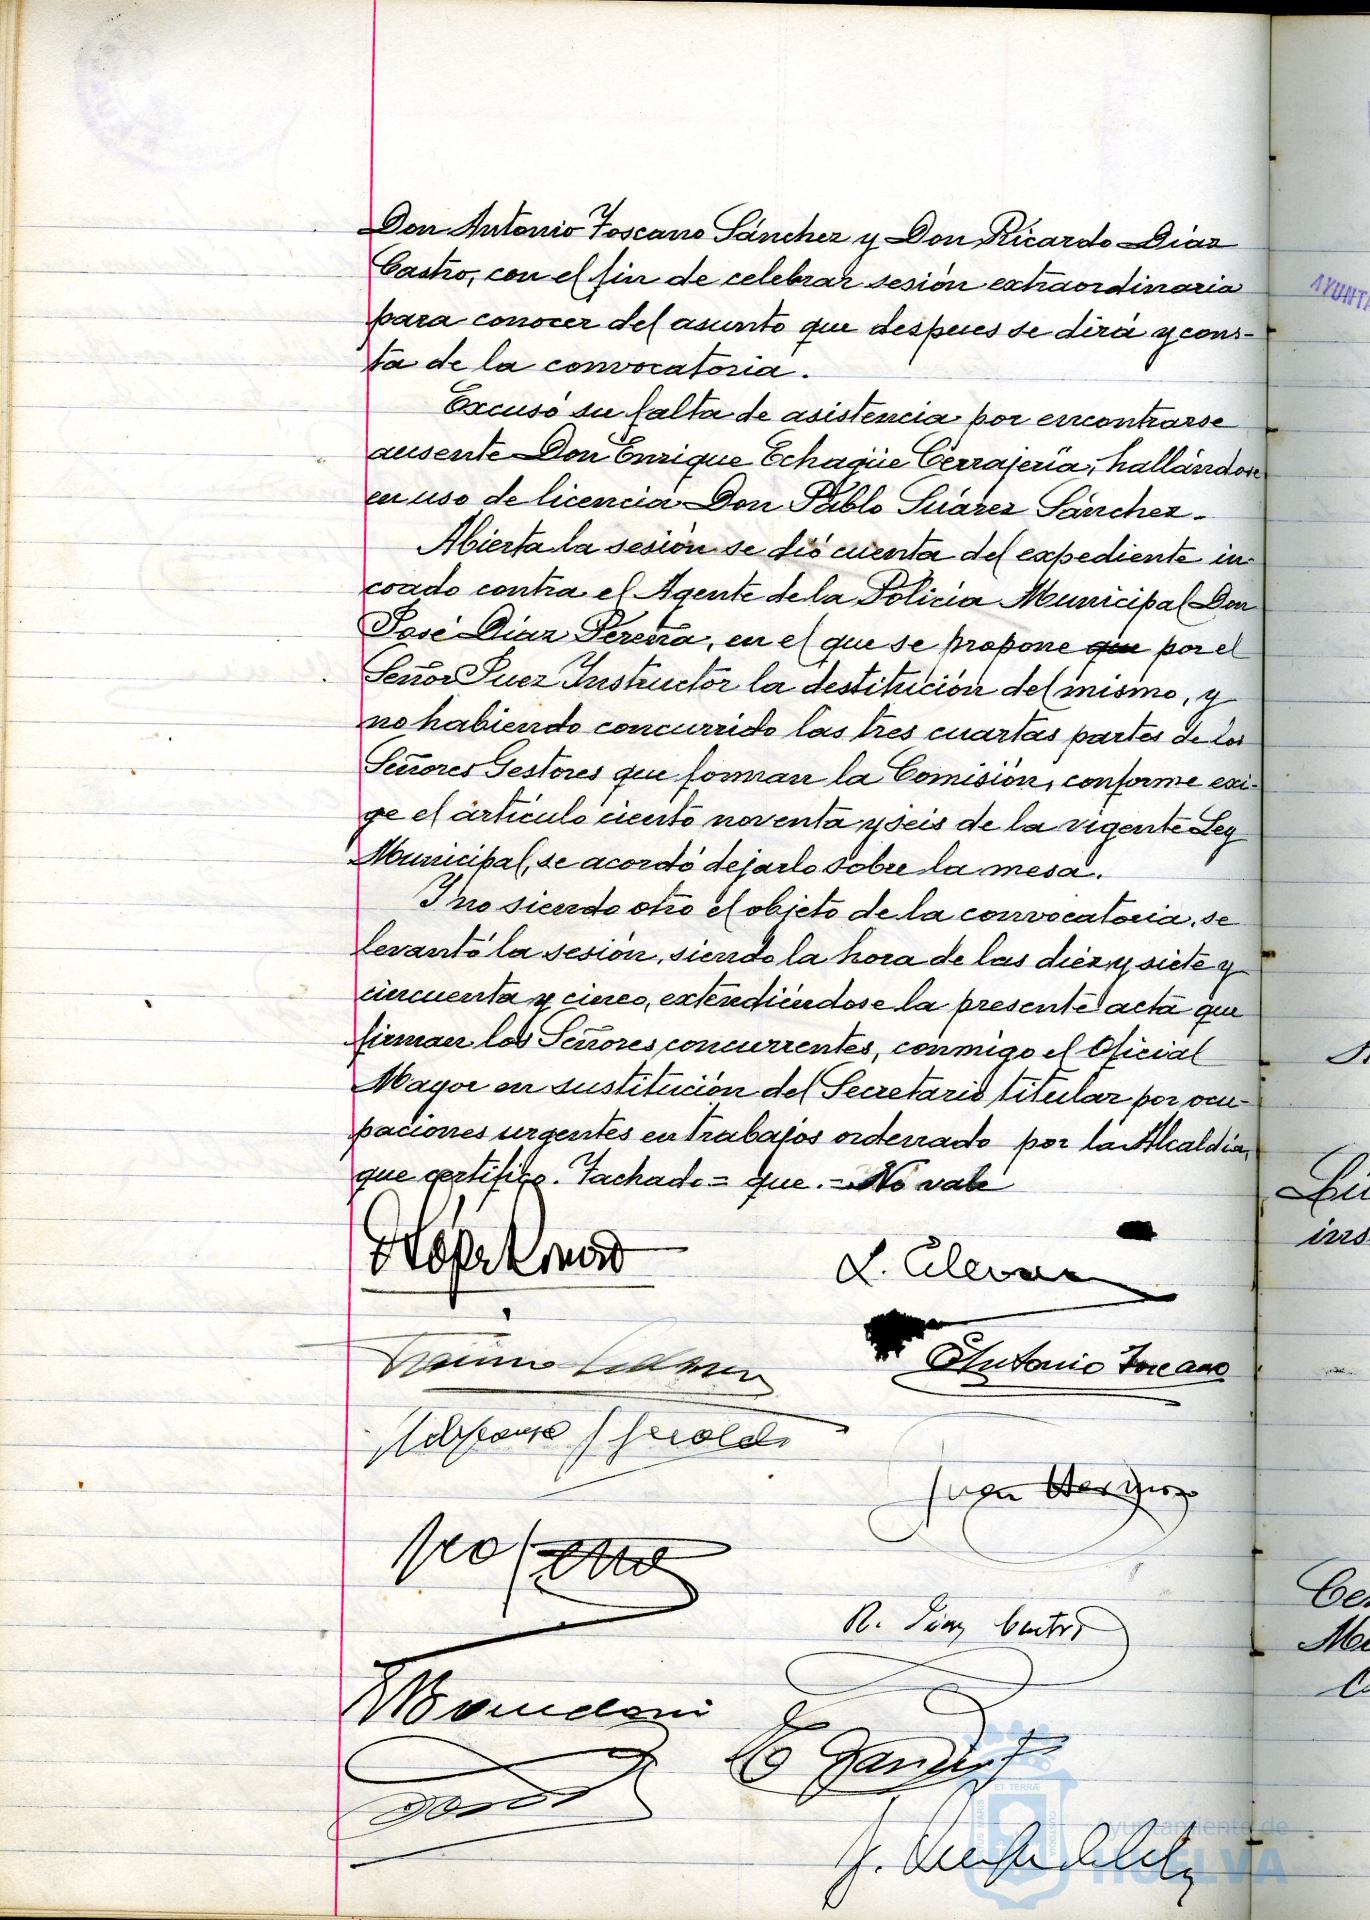 Don Antonio Toscano Sánchez y Don Ricardo Díaz
Castro, con el fin de celebrar sesión extraordinaria
para conocer del asunto que despues se dirá y cons-
ta de la convocatoria.
Excusó su falta de asistencia por encontrarse
ausente Don Enrique Echagüe Cerrajería, hallándose
en uso de licencia Don Pablo Suárez Sánchez.
Abierta la sesión se dió cuenta del expediente in-
coado contra el Agente de la Policía Municipal Don
José Díaz Pereña, en el que se propone que por el
Señor Juez Instructor la destitución del mismo, y
no habiendo concurrido las tres cuartas partes de los
Señores Gestores que forman la Comisión, conforme exi-
ge el artículo ciento noventa y seis de la vigente Ley
Municipal, se acordó dejarlo sobre la mesa.
Y no siendo otro el objeto de la convocatoria, se
levantó la sesión, siendo la hora de las diez y siete y
cincuenta y cinco, extendiéndose la presente acta que
firman los Señores concurrentes, conmigo el Oficial
Mayor en sustitución del Secretario titular por ocu-
paciones urgentes en trabajos ordenado por la Alcaldía,
que certifico. Tachado = que. = No vale
Antonio Toscano
Juan Hermoso
R. Díaz Castro
AYUNTA
ayuntamiento de
HUELVA